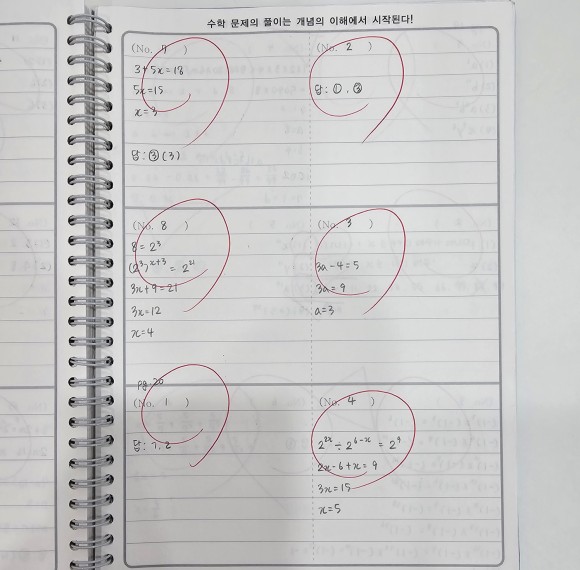 수학 문제의 풀이는 개념의 이해에서 시작된다!
(No. 7 )
3+5x=18
5x=15
x=3
답: ③(3)
(No. 8 )
8=2³
(2³)ˣ⁺³ = 2²¹
3x+9=21
3x=12
x=4
pg.26
(No. 1 )
답: 1, 2
(No. 2 )
답: ①, ③
(No. 3 )
3a-4=5
3a=9
a=3
(No. 4 )
2²ˣ÷2⁶⁻ˣ = 2⁹
2x-6+x=9
3x=15
x=5